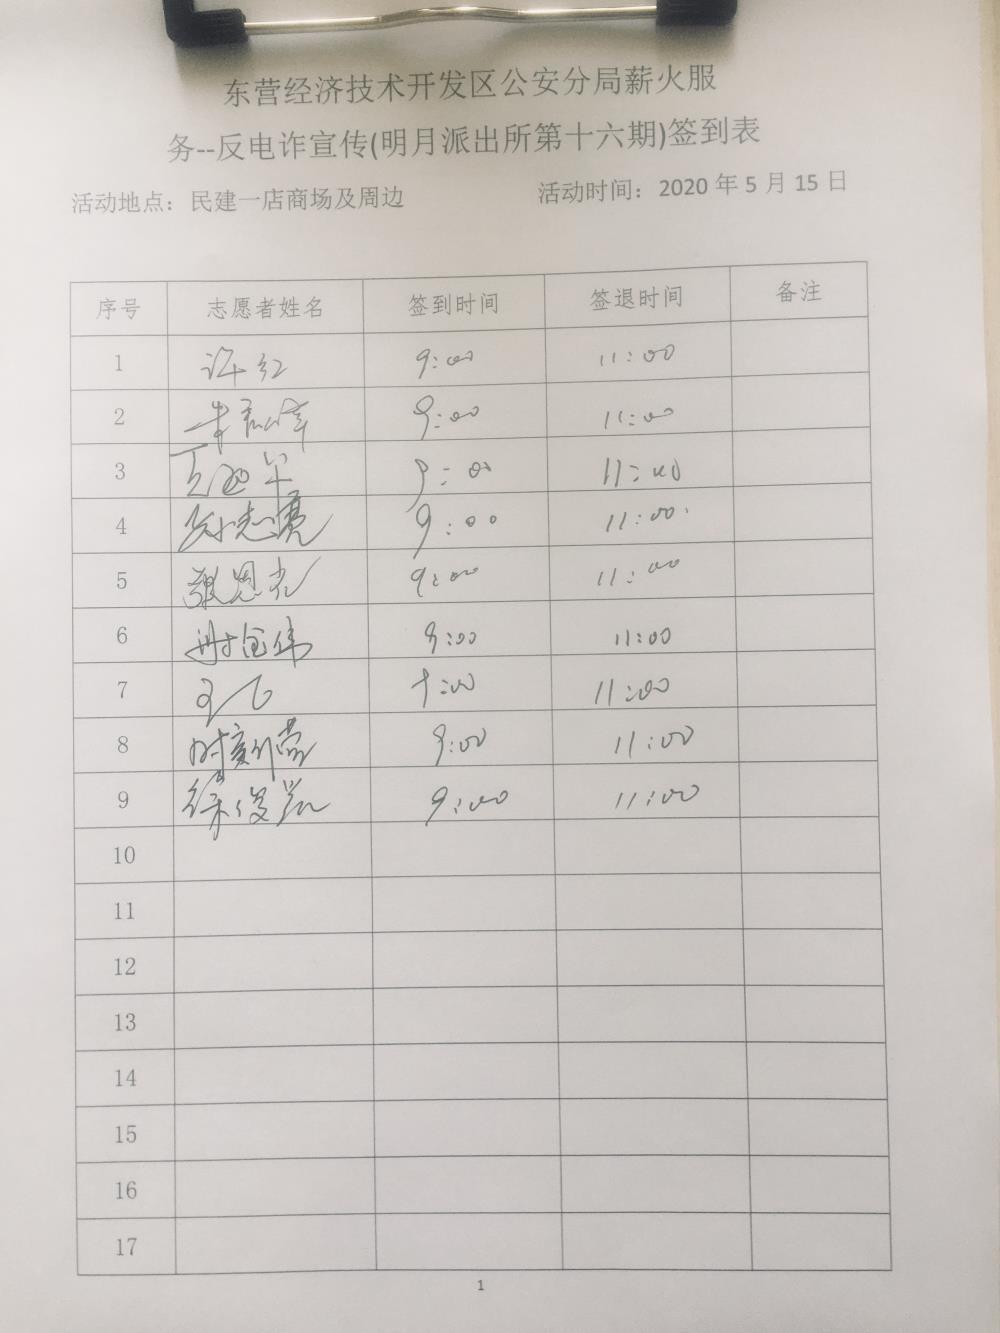 东营经济技术开发区公安分局薪火服
务--反电诈宣传(明月派出所第十六期)签到表
活动地点：民建一店商场及周边 活动时间：2020 年 5 月 15 日
序号 志愿者姓名 签到时间 签退时间 备注
1 许红 9:00 11:00
2 9:00 11:00
3 9:00 11:00
4 孙志亮 9:00 11:00
5 张恩光 9:00 11:00
6 9:00 11:00
7 9:00 11:00
8 9:00 11:00
9 徐俊凯 9:00 11:00
10
11
12
13
14
15
16
17
1